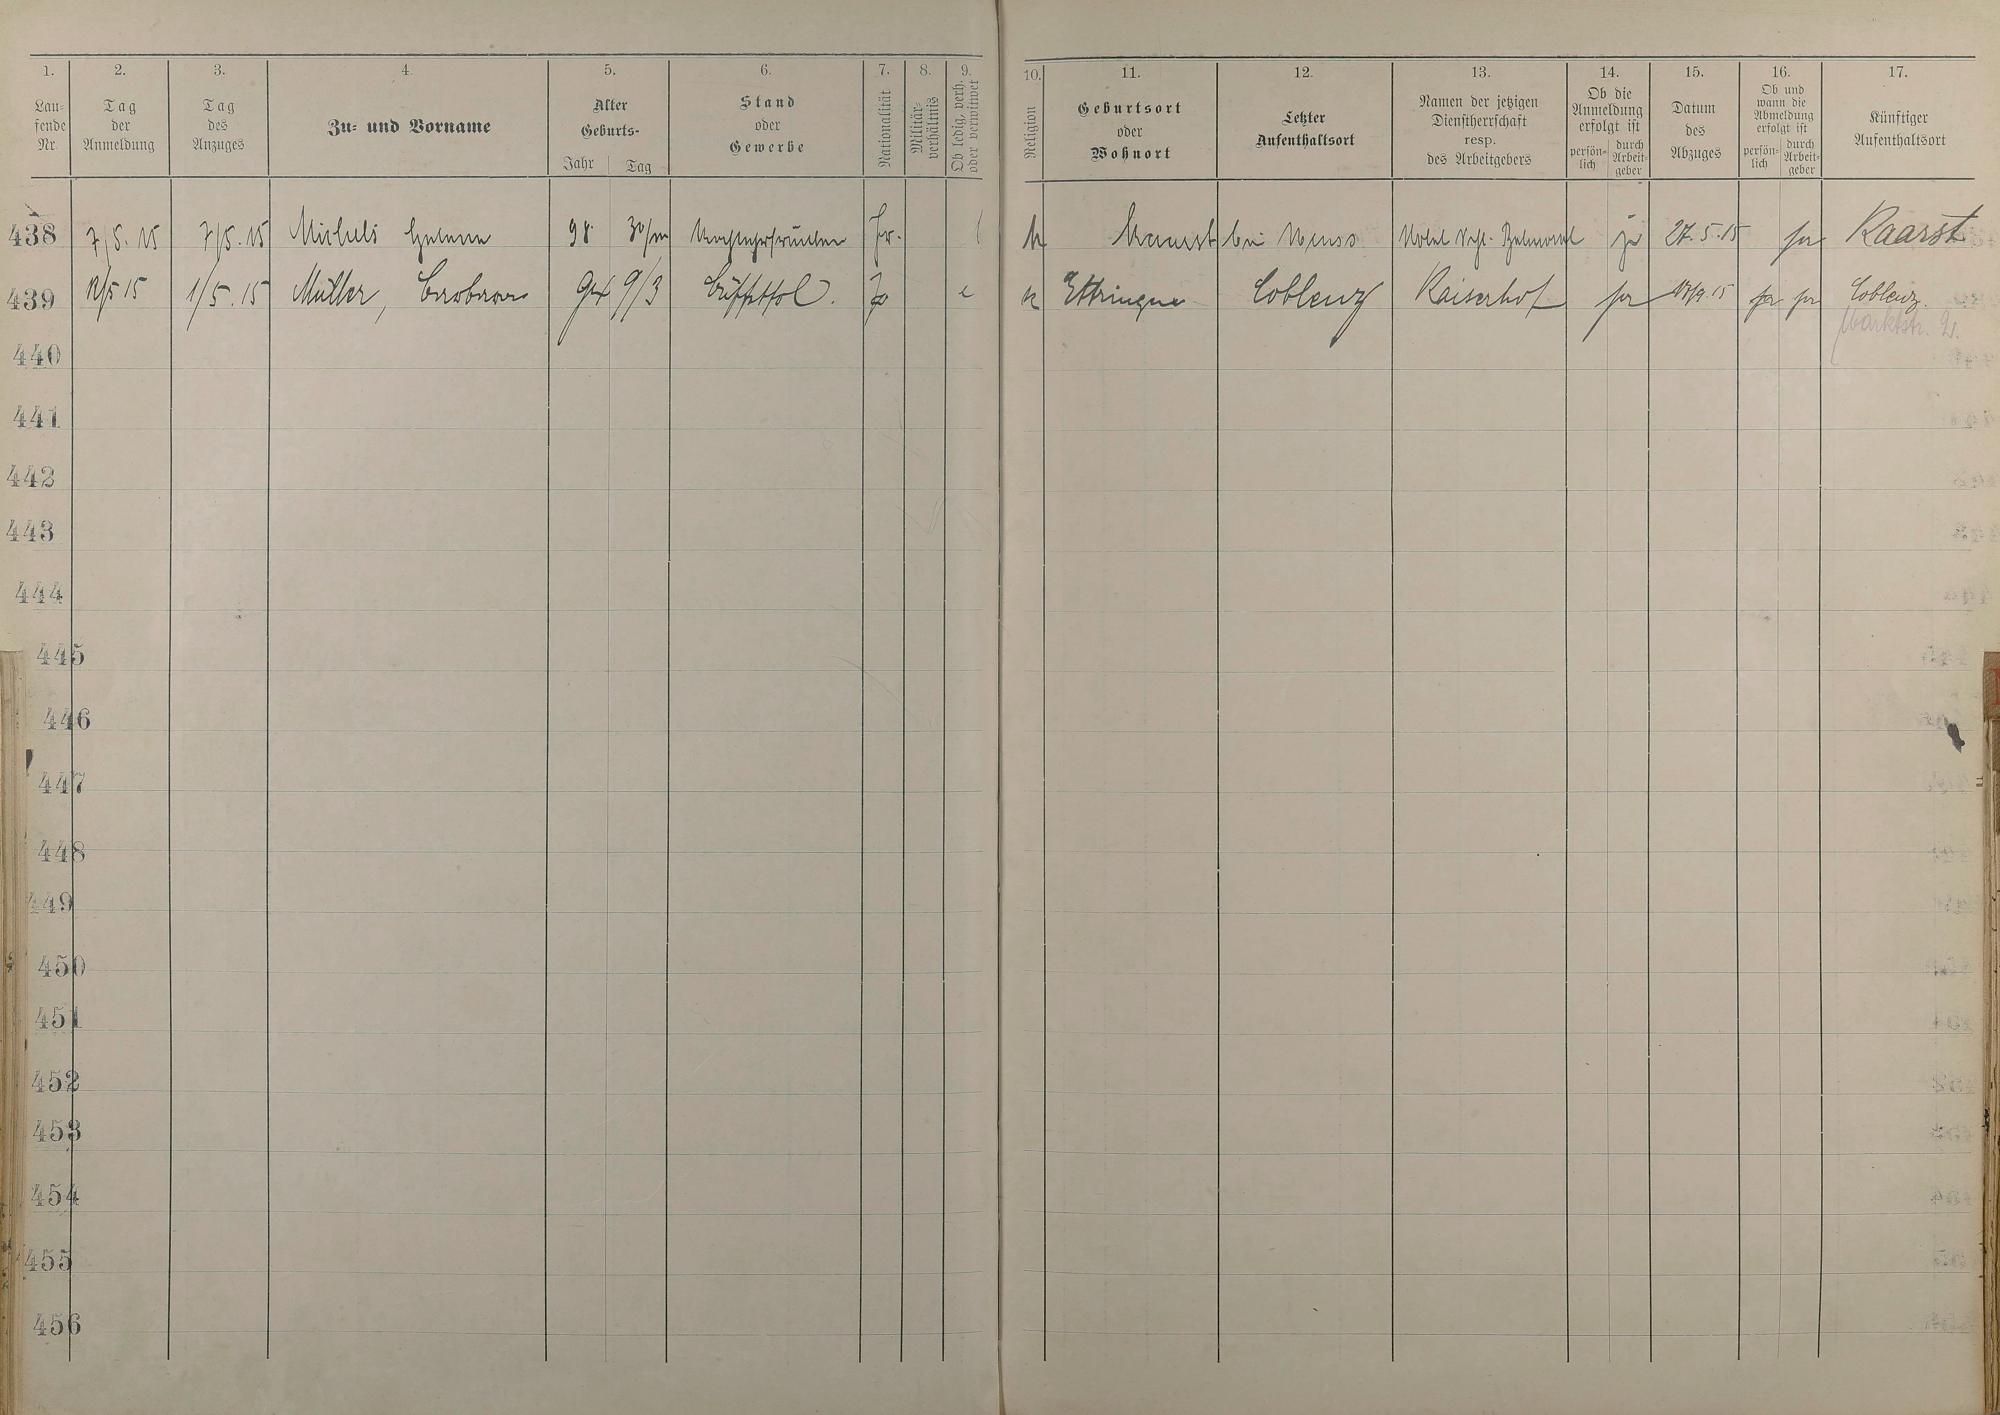 1. 2. 3. 4. 5. 6. 7. 8. 9. 10. 11. 12. 13. 14. 15. 16. 17.
Lau-
fende
Nr.
Tag
der
Anmeldung
Tag
des
Anzuges
Zu- und Vorname
Alter
Geburts-
Jahr Tag
Stand
oder
Gewerbe
Nationalität
Militär-
verhältnis
Ob ledig, verh.
oder verwitwet
Religion
Geburtsort
oder
Wohnort
Letzter
Aufenthaltsort
Namen der jetzigen
Dienstherrschaft
resp.
des Arbeitgebers
Ob die
Anmeldung
erfolgt ist
persön-
lich
durch
Arbeit-
geber
Datum
des
Abzuges
Ob und
wann die
Abmeldung
erfolgt ist
persön-
lich
durch
Arbeit-
geber
Künftiger
Aufenthaltsort
438 7/5. 15 7/5. 15 Michels Helene 98 Pr. l k bei Neuss ja 27.5.15 ja Kaarst
439 12/5 15 1/5. 15 Müller, Barbara 9/3 Büffetfrl. k Ettringen Coblenz Kaiserhof ja ja ja Coblenz.
Marktstr. 2.
440
441
442
443
444
445
446
447
448
449
450
451
452
453
454
455
456